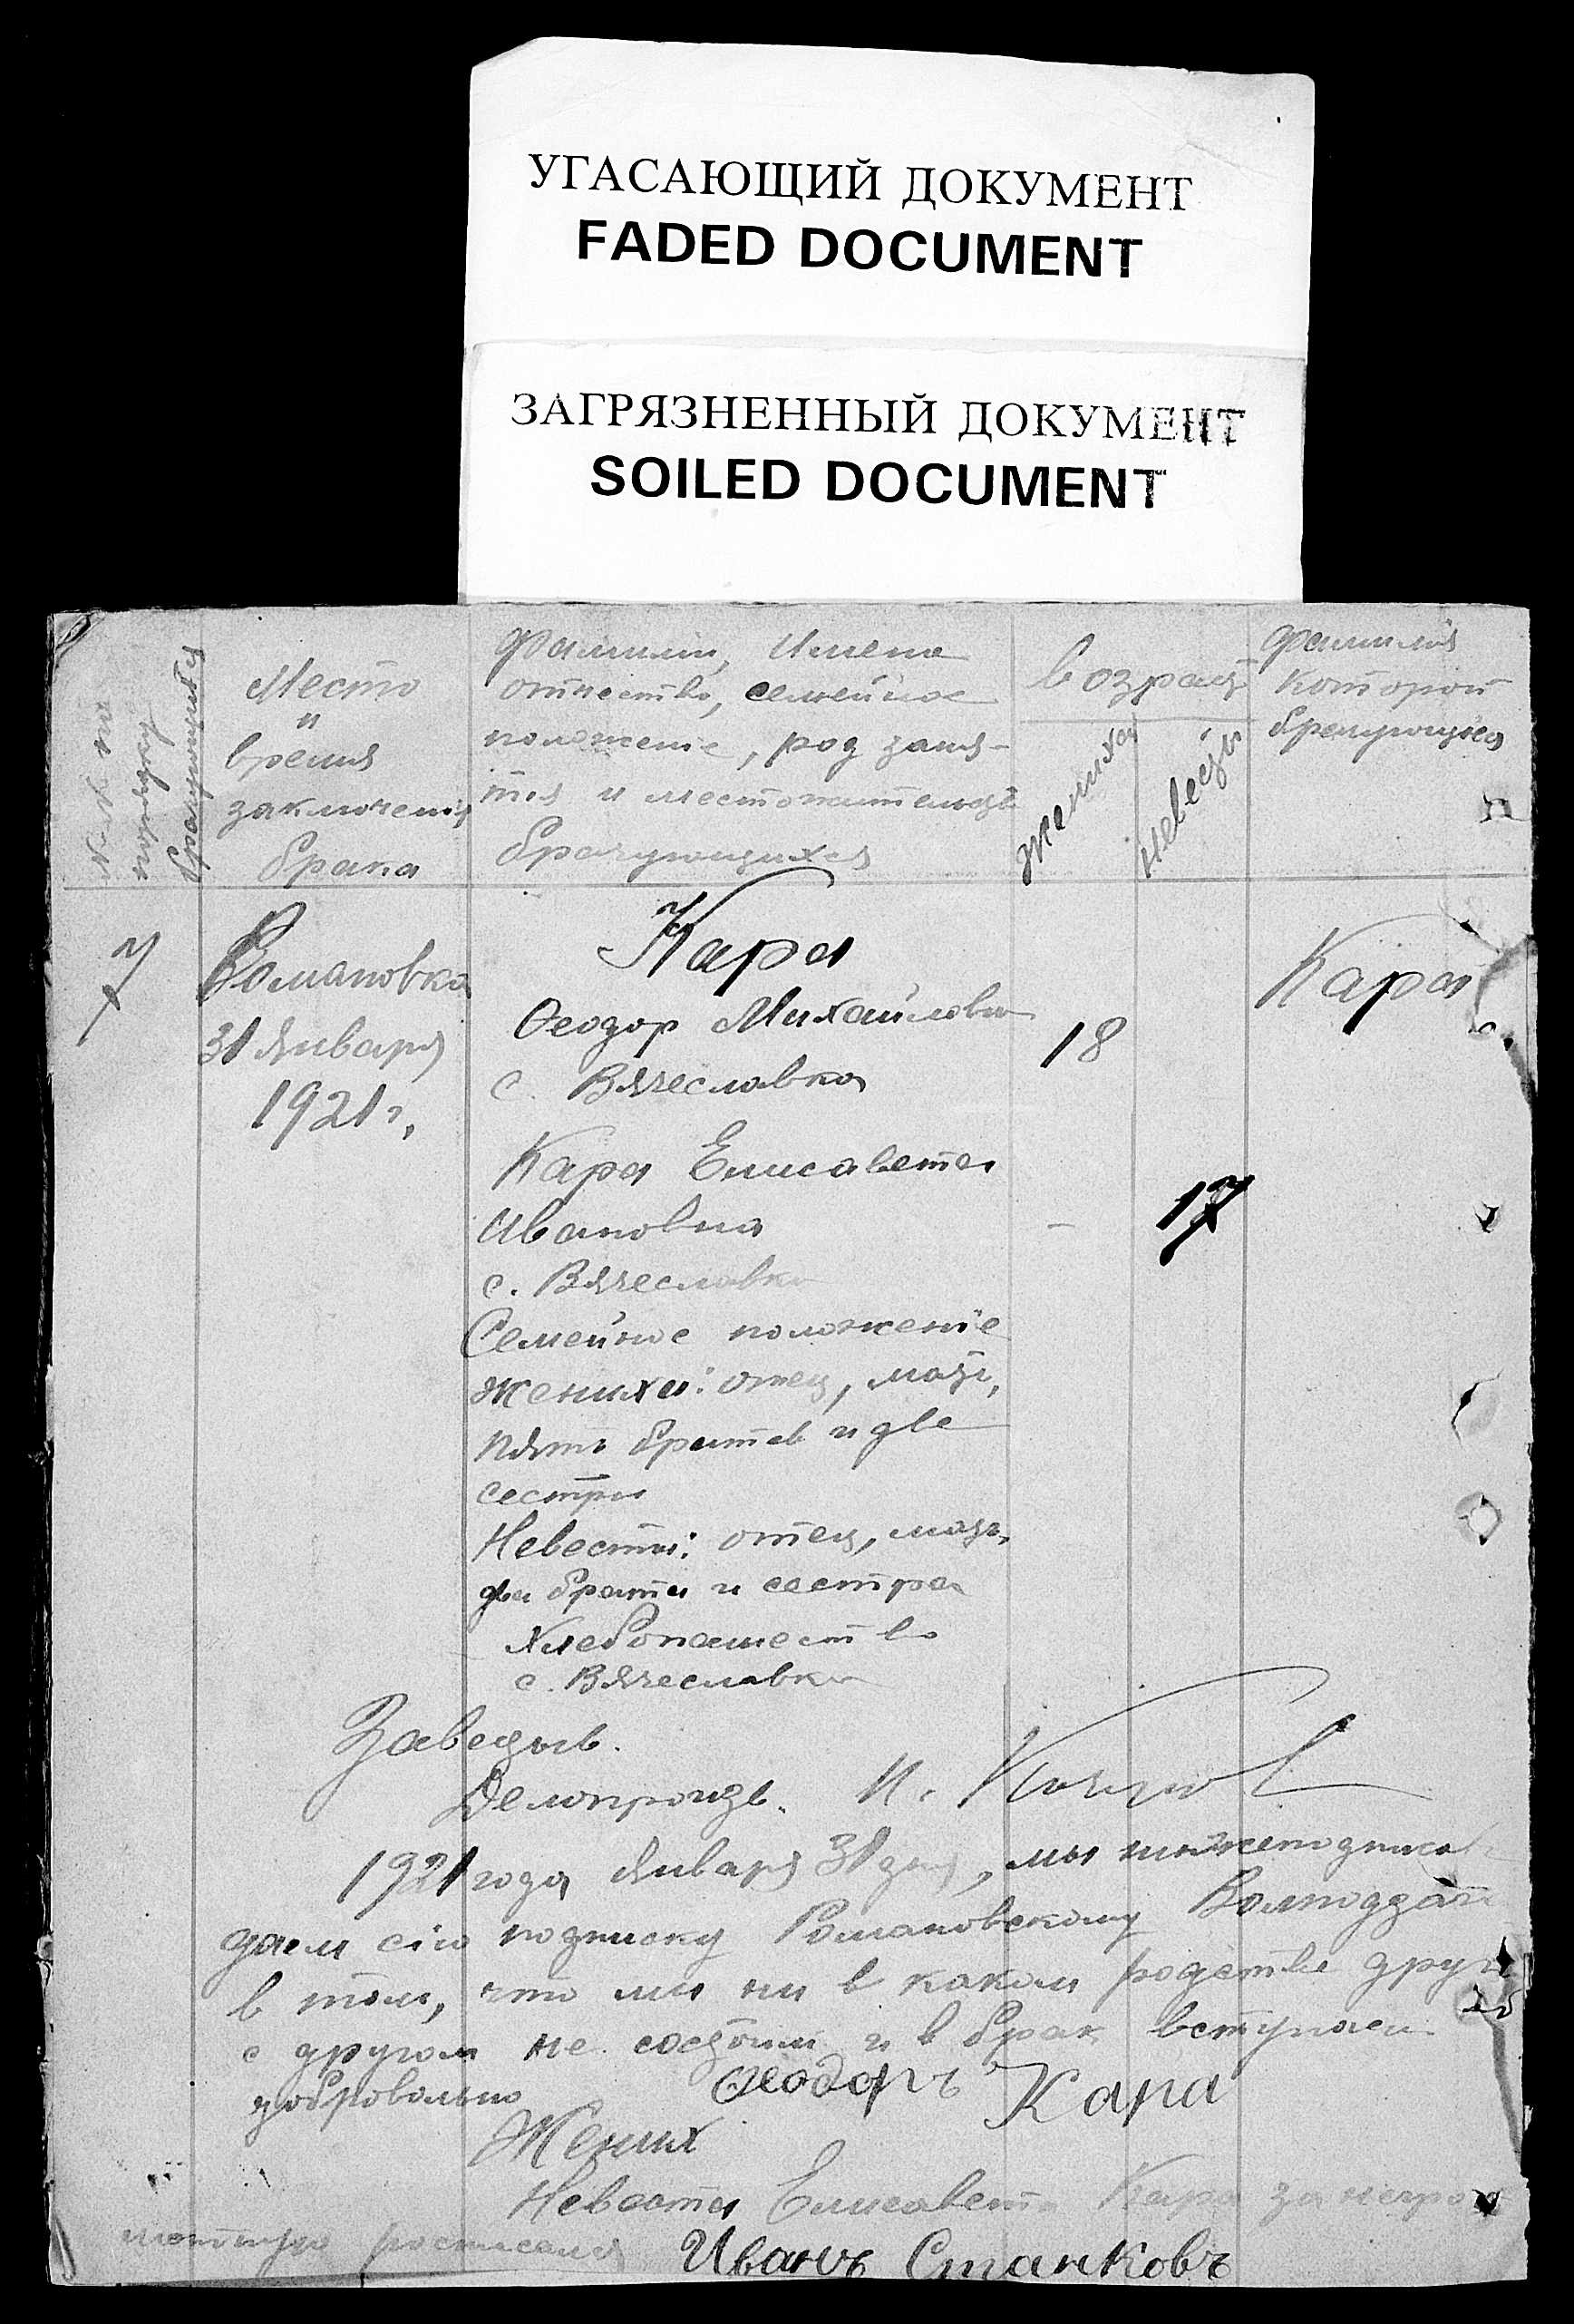 УГАСАЮЩИЙ ДОКУМЕНТ
FADED DOCUMENT
ЗАГРЯЗНЕННЫЙ ДОКУМЕНТ
SOILED DOCUMENT
брачущихся
Место
и
время
заключенiя
брака
Фамилии, Имена
отчество, семейное
положенiе, род заня-
тiя и местожительство
брачующихся
возраст
жениха
невесты
Фамилiя
которой
брачующiеся
7
Романовка
31 Января
1921 г.
Кара
Феодор Михайлович
с. Вячеславка
18
Кара
Кара Елисавета
Ивановна
17
с. Вячеславка
Семейное положенiе
жениха: отец, мать,
пять братьев и две
сестры
Невесты: отец, мать,
два брата и сестра
Хлебопашество
с. Вячеславка
Заведыв.
Делопроизв. И.
1921 года Января 31 дня, мы нижеподписав
даем сiю подписку Романовскому
в том, что мы ни в каком родстве друг
с другом не состоим и в брак вступаем
добровольно
Феодоръ Кара
Жених
Невеста Елисавета Кара за негра
мотную росписался Иванъ Станковъ